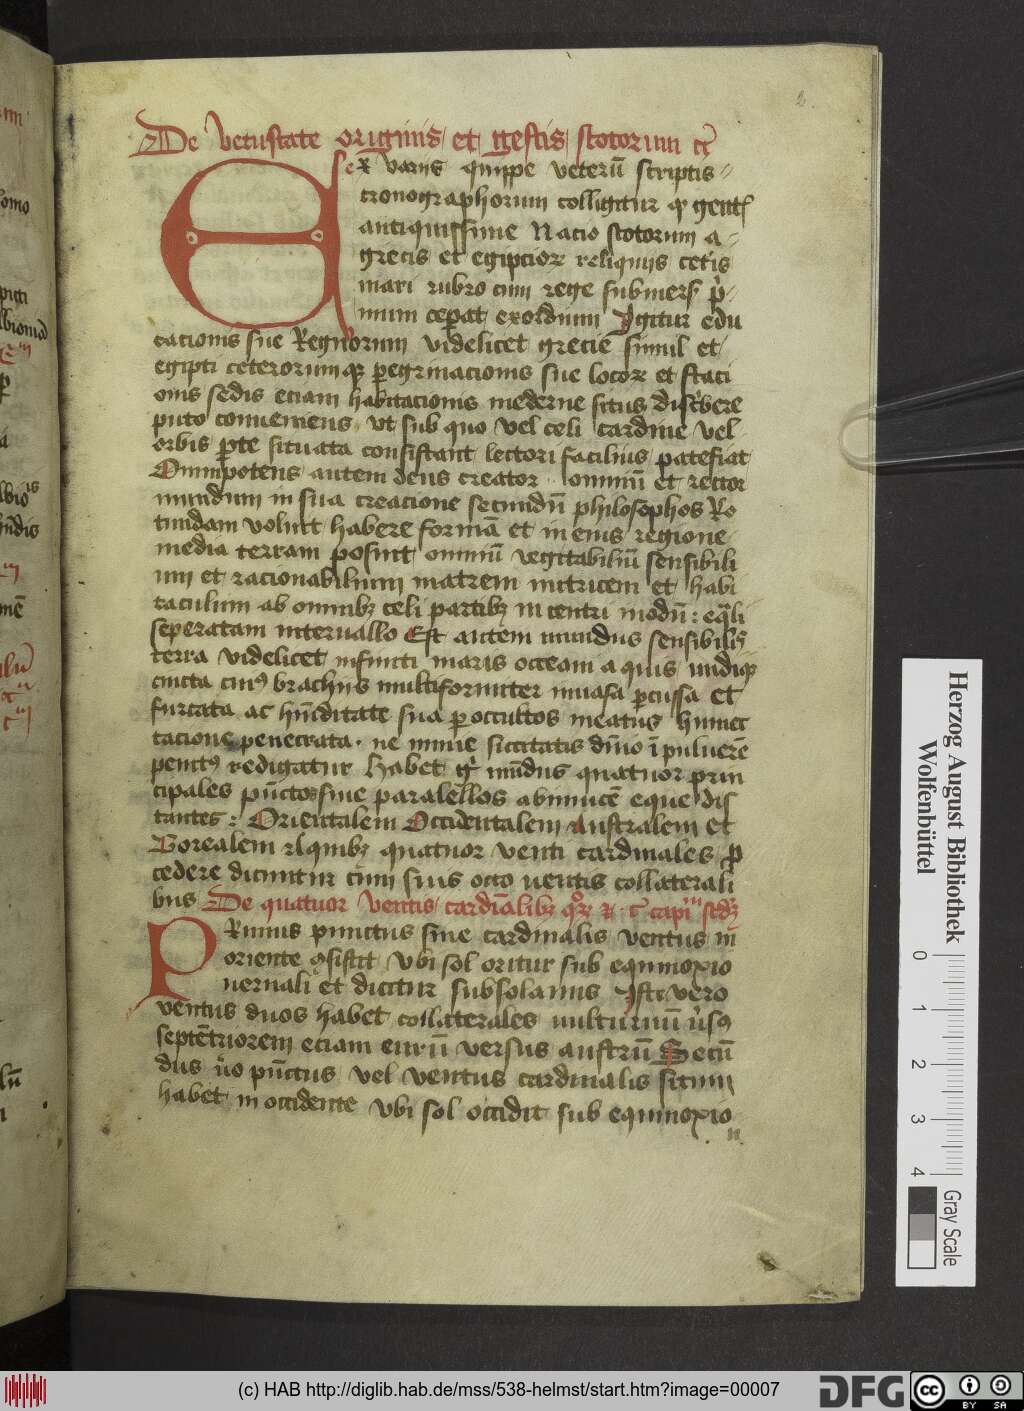 2.
De vetustate originis et gestis scotorum etc
Ex variis quippe veterū scriptis
cronographorum colligitur ꝙ gentꝭ
antiquissime Nacio scotorum a
grecis et egipcioꝝ reliquiis cetis
mari rubro cum rege submersꝭ pͥ
mum ceperat exordium Igitur edu
cacionis sue Regnorum videlicet grecie simul et
egipti ceterorumqꝫ ꝑegrinacionis sue locoꝝ et staci
onis sedis eciam habitacionis moderne situs discͥbere
puto conueniens vt sub quo vel celi cardine vel
orbis ꝑte situata consistant lectori facilius patefiat
Omnipotens autem deus creator omniū et rector
mundum in sua creacione secundū philosophos Ro
tundam voluit habere formā et in eius regione
media terram posuit omniū vegitabiliū sensibili
um et racionabilium matrem nutricem et habi
taculum ab omnibꝫ celi partibꝫ in centri modū : eq̄li
seperatam interuallo Est autem mundus sensibilis
terra videlicet infiniti maris occeani aquis undiqꝫ
cincta cuiꝰ brachiis multiformiter inuasa ꝑcussa et
furcata ac hūiditate sua ꝑ occultos meatus humec
tacione penetrata · ne nimie siccitatis dn̄io ī puluerē
penitꝰ redigatur Habet gͥ mūdus quatuor prin
cipales pūctos siue paralellos abinuicē eque dis
tantes : Orientalem Occidentalem Australem et
Borealem a quibꝫ quatuor venti cardinales ꝓ
cedere dicuntur cum suis octo uentis collaterali
bus De quatuor ventis cardīalibꝫ
Rimus punctus siue cardinalis ventus in
oriente ꝯsistit vbi sol oritur sub equinoxio
uernali et dicitur subsolanus Iste vero
ventus duos habet collaterales vulturnū v̓sꝰ
septētriorem eciam eurū versus austrū Secū
dus v̓o pūctus vel ventus cardinalis situm
habet in occidente vbi sol occidit sub equinoxio
Herzog August Bibliothek
Wolfenbüttel
0 1 2 3 4
Gray Scale
(c) HAB http://diglib.hab.de/mss/538-helmst/start.htm?image=00007
DFG
cc BY SA